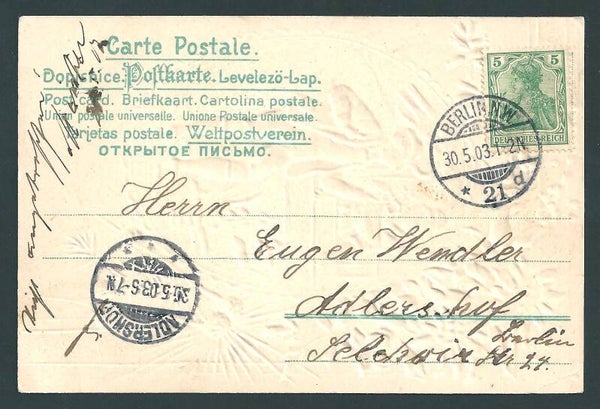 Carte Postale.
Dopisnice. Postkarte. Levelező-Lap.
Post card. Briefkaart. Cartolina postale.
Union postale universelle. Unione Postale universale.
Tarjetas postale. Weltpostverein.
ОТКРЫТОЕ ПИСЬМО.
5 5
DEUTSCHES REICH
BERLIN NW
30.5.03.1-2N
* 21 d
Herrn
Eugen Wendler
Adlershof
Berlin
Str 27.
ADLERSHOF
30.5.03.6-7N